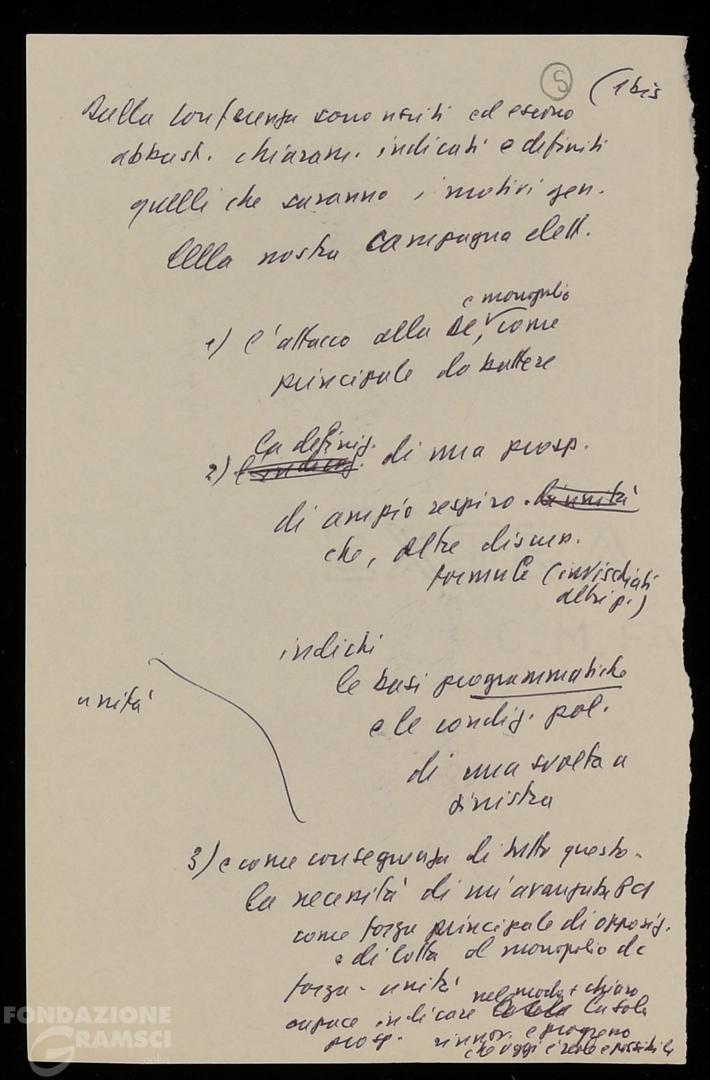 5 (1 bis
Dalla conferenza sono usciti ed escono
abbast. chiaram. indicati e definiti
quelli che saranno i motivi gen.
della nostra campagna elett.
e monopolio
1) l'attacco alla DC, come
principale da battere
la definiz.
2) l'indicaz. di una prosp.
di ampio respiro. di unità
che, oltre discus.
formule (invischiati
altri p.)
indichi
le basi programmatiche
e le condiz. pol.
unità
di una svolta a
sinistra
3) e come conseguenza di tutto questo -
la necessità di un'avanzata PCI
come forza principale di opposiz.
e di lotta al monopolio dc
forza - unità
nel modo + chiaro
capace indicare la sola
prosp. rinnov. e progresso
che oggi è reale e possibile
FONDAZIONE
GRAMSCI
onlus